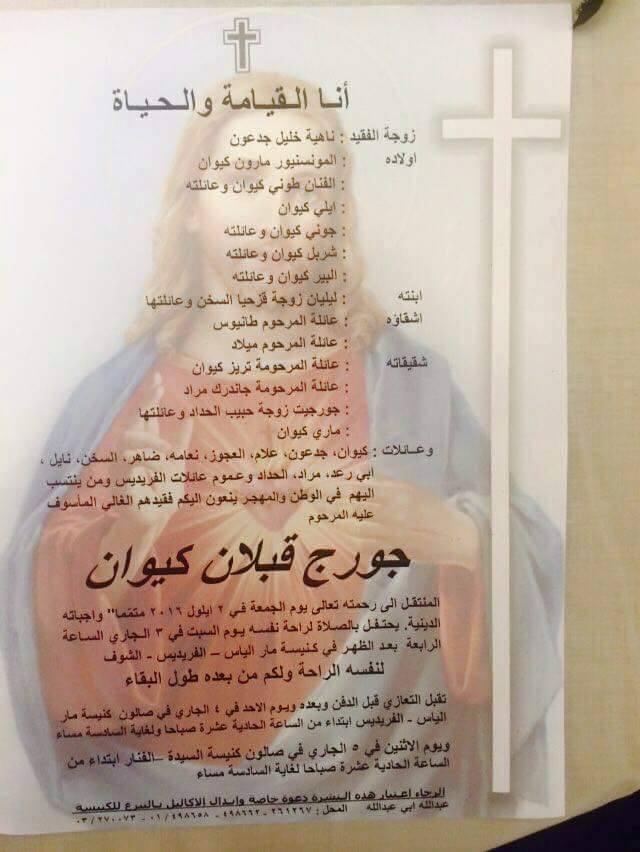 أنا القيامة والحياة
زوجة الفقيد : ناهية خليل جدعون
اولاده : المونسنيور مارون كيوان
: الفنان طوني كيوان وعائلته
: ايلي كيوان
: جوني كيوان وعائلته
: شربل كيوان وعائلته
: البير كيوان وعائلته
ابنته : ليليان زوجة قزحيا السخن وعائلتها
اشقاؤه : عائلة المرحوم طانيوس
: عائلة المرحوم ميلاد
شقيقاته : عائلة المرحومة تريز كيوان
: عائلة المرحومة جاندرك مراد
: جورجيت زوجة حبيب الحداد وعائلتها
: ماري كيوان
وعائلات : كيوان، جدعون، علام، العجوز، نعامه، ضاهر، السخن، نايل ،
أبي رعد، مراد، الحداد وعموم عائلات الفريديس ومن ينتسب
اليهم في الوطن والمهجر ينعون اليكم فقيدهم الغالي المأسوف
عليه المرحوم
جورج قبلان كيوان
المنتقل الى رحمته تعالى يوم الجمعة في ٢ ايلول ٢٠١٦ متمما" واجباته
الدينية. يحتفل بالصلاة لراحة نفسه يوم السبت في ٣ الجاري الساعة
الرابعة بعد الظهر في كنيسة مار الياس – الفريديس - الشوف
لنفسه الراحة ولكم من بعده طول البقاء
تقبل التعازي قبل الدفن وبعده ويوم الاحد في ٤ الجاري في صالون كنيسة مار
الياس - الفريديس ابتداء من الساعة الحادية عشرة صباحا ولغاية السادسة مساء
ويوم الاثنين في ٥ الجاري في صالون كنيسة السيدة –الفنار ابتداء من
الساعة الحادية عشرة صباحا لغاية السادسة مساء
الرجاء اعتبار هذه النشرة دعوة خاصة وابدال الاكاليل بالتبرع للكنيسة
عبدالله ابي عبدالله المحل : ٢٦١٢٦٧ - ٤٩٨٦٦٢ - ٠١/٤٩٨٦٥٨ - ٠٣/٢٧٠٠٧٣